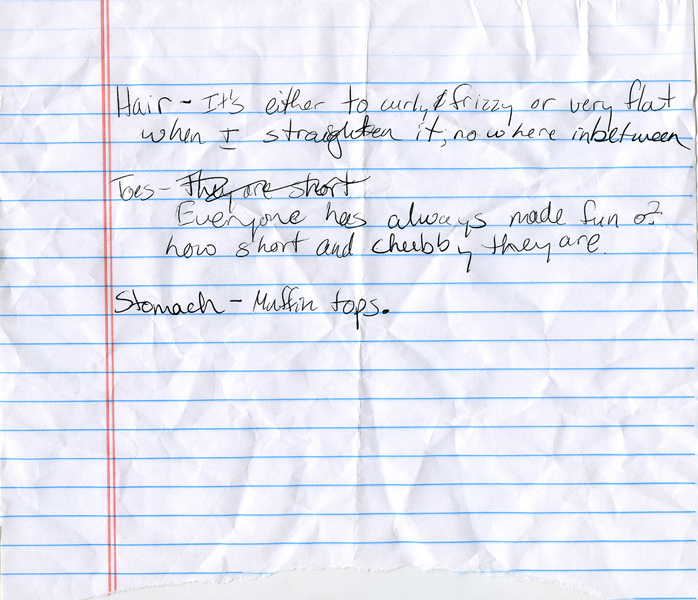 Hair - It's either to curly & frizzy or very flat
when I straighten it, no where inbetween
Toes - They are short
Everyone has always made fun of
how short and chubby they are.
Stomach - Muffin tops.